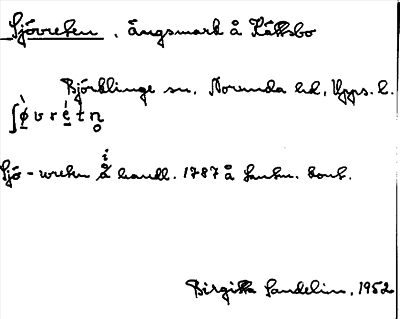 Sjövreten, ängsmark å Kättsbo
Björklinge sn, Norunda hd, Upps. l.
ʃø̀vrétn̥
Sjö-wreten i handl. 1787 å Lantm. kont.
Birgitta Sandelin, 1952